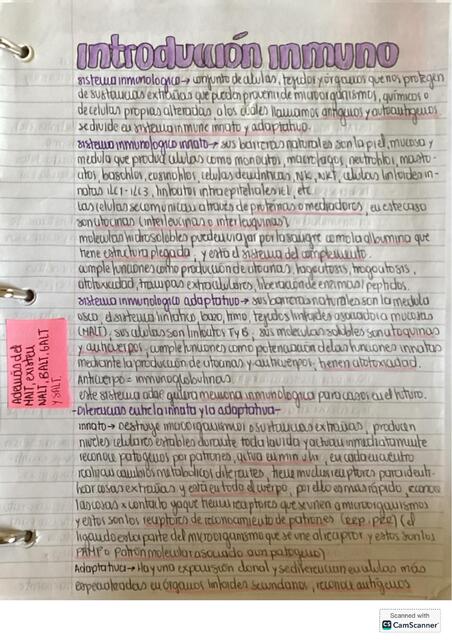 introducción inmuno
sistema inmunologico → conjunto de celulas, tejidos y órganos que nos protegen
de sustancias extrañas que pueden provenir de microorganismos, químicos o
de celulas propias alteradas a los cuales llamamos antígenos y autoantígenos
se divide en sistema inmune innato y adaptativo.
sistema inmunologico innato → sus barreras naturales son la piel, mucosa y
medula que produce celulas como monocitos, macrofagos, neutrofilos, masto-
citos, basofilos, eosinofilos, celulas dendriticas, NK, NKT, celulas linfoides in-
natas ilc1 - ilc3, linfocitos intraepiteliales iel, etc
las celulas se comunican através de proteinas o mediadores, en este caso
son citocinas (interleucinas o interleuquinas)
moleculas hidrosolubles pueden viajar por la sangre como la albumina que
tiene estructura plegada, y está el sistema del complemento.
cumple funciones como producción de citocinas, fagocitosis, trogocitosis,
citotoxicidad, trampas extracelulares, liberación de enzimas y peptidos.
sistema inmunologico adaptativo → sus barreras naturales son la medula
osea, el sistema linfatico, bazo, timo, tejidos linfoides asociado a mucosas
(MALT), sus celulas son linfocitos T y B, sus moleculas solubles son citoquinas
y anticuerpos, cumple funciones como potenciación de las funciones innatas
mediante la producción de citocinas y anticuerpos, tienen citotoxicidad.
Anticuerpo = inmunoglobulinas
este sistema adquiere memoria inmunologica para casos en el futuro.
Además del
MALT, existen
NALT, BALT, GALT
y SALT.
-Diferencias entre la innata y la adaptativa-
innato → Destruye microorganismos o sustancias extrañas, producen
niveles celulares estables durante toda la vida y actua inmediatamente
reconoce patogenos por patrones, actua en min y hr, en cada encuentro
realiza cambios metabolicos diferentes, tiene muchos receptores para identi-
ficar cosas extrañas y está en todo el cuerpo, por ello es mas rápido, reconoce
las cosas x contacto ya que tiene receptores que se unen a microorganismos
y estos son los receptores de reconocimiento de patrones (el
ligando es la parte del microorganismo que se une al receptor y estos son los
PAMP o Patrón molecular asociado a un patogeno)
Adaptativa → Hay una expansión clonal y se diferencian en celulas más
especializadas en órganos linfoides secundarios, reconoce antígenos
Scanned with
CS CamScanner